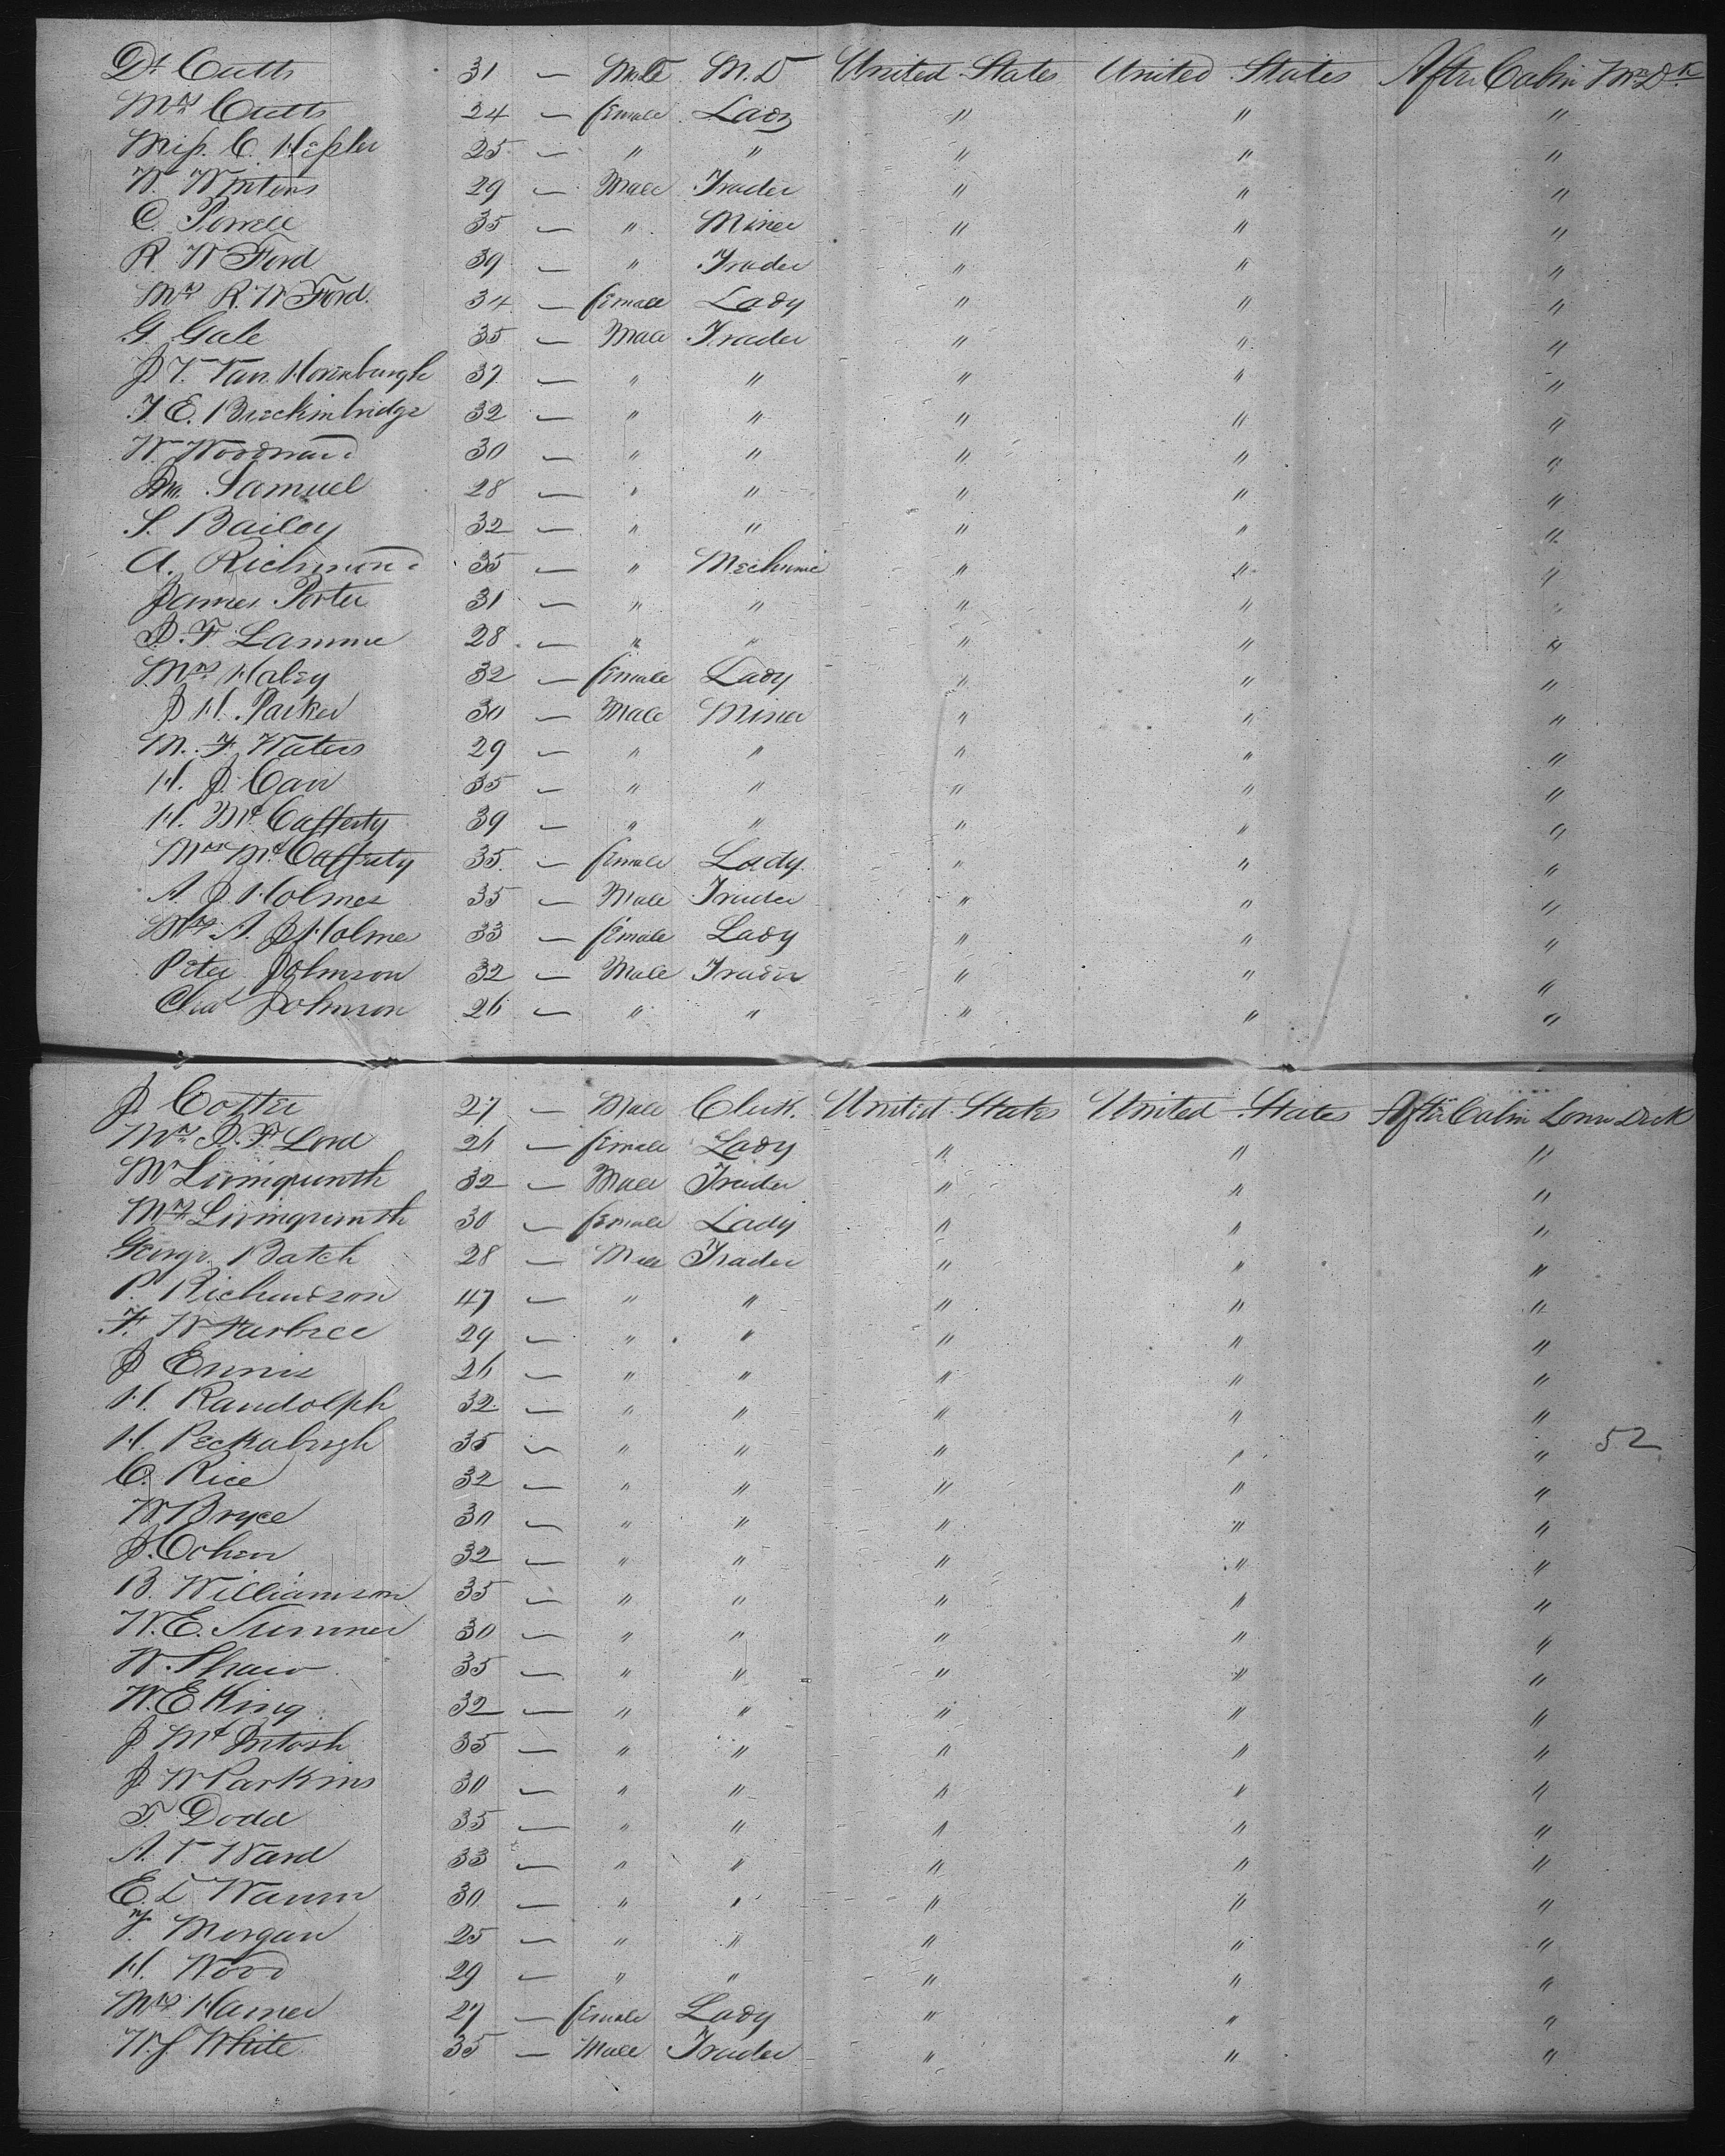 Dr Cutts 31 — Male M.D United States United States After Cabin Mn Dk
Mrs Cutts 24 — female Lady " " "
Miss. C. Hepler 25 — " " " " "
W. Winters 29 — Male Trader " " "
C. Powell 35 — " Miner " " "
R. W Ford 39 — " Trader " " "
Mrs R. W Ford. 34 — female Lady " " "
G. Gale 35 — Male Trader " " "
J V. Van Hornburgh 37 — " " " " "
J E. Breckinbridge 32 — " " " " "
W Woodward 30 — " " " " "
Jno. Samuel 28 — " " " " "
S. Bailey 32 — " " " " "
A. Richmond 35 — " Mechanic " " "
James Porter 31 — " " " " "
J. F. Lamme 28 — " " " " "
Mrs Haley 32 — female Lady " " "
J H. Parker 30 — Male Miner " " "
M. F. Waters 29 — " " " " "
H. J. Carr 35 — " " " " "
H. McCafferty 39 — " " " " "
Mrs McCafferty 35 — female Lady " " "
A J Holmes 35 — Male Trader " " "
Mrs A. J Holmes 33 — female Lady " " "
Peter Johnson 32 — Male Trader " " "
Chas Johnson 26 — " " " " "
J Cotter 27 — Male Clerk. United States United States After Cabin Lower Deck
Mrs J. F Lord 26 — female Lady " " "
Mr 32 — Male Trader " " "
Mrs 30 — female Lady " " "
George Batch 28 — Male Trader " " "
P. Richardson 47 — " " " " "
F. W Furbree 29 — " " " " "
J Ennis 26 — " " " " "
H. Randolph 32 — " " " " "
H. Peckabugh 35 — " " " " " 52
C. Rice 32 — " " " " "
W Bryce 30 — " " " " "
J. Cohen 32 — " " " " "
B. Williamson 35 — " " " " "
W. E. Sumner 30 — " " " " "
W. Shaw 35 — " " " " "
W. E King 32 — " " " " "
J. McIntosh 35 — " " " " "
J. W Parkins 30 — " " " " "
T. Dodd 35 — " " " " "
A. V Ward 33 — " " " " "
E. L 30 — " " " " "
J. Morgan 25 — " " " " "
H. Wood 29 — " " " " "
Mrs Hamer 27 — female Lady " " "
W. S White 35 — Male Trader " " "